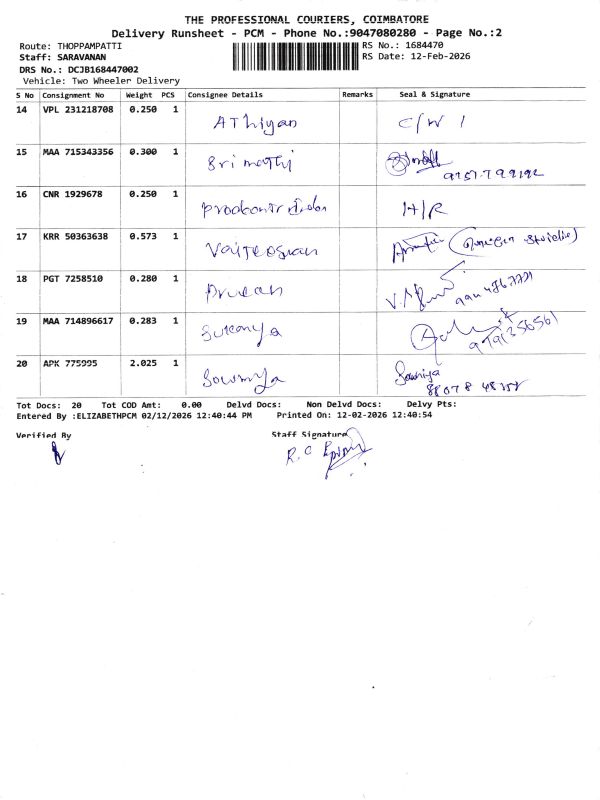 THE PROFESSIONAL COURIERS, COIMBATORE
Delivery Runsheet - PCM - Phone No.:9047080280 - Page No.:2
Route: THOPPAMPATTI
Staff: SARAVANAN
DRS No.: DCJB168447002
Vehicle: Two Wheeler Delivery
RS No.: 1684470
RS Date: 12-Feb-2026
S No Consignment No Weight PCS Consignee Details Remarks Seal & Signature
14 VPL 231218708 0.250 1 AThiyan C/W 1
15 MAA 715343356 0.300 1 Srimathi
16 CNR 1929678 0.250 1 H/R
17 KRR 50363638 0.573 1
18 PGT 7258510 0.280 1
19 MAA 714896617 0.283 1 Sukanya
20 APK 775995 2.025 1 Sowmya Sowmiya
Tot Docs: 20 Tot COD Amt: 0.00 Delvd Docs: Non Delvd Docs: Delvy Pts:
Entered By :ELIZABETHPCM 02/12/2026 12:40:44 PM Printed On: 12-02-2026 12:40:54
Verified By Staff Signature